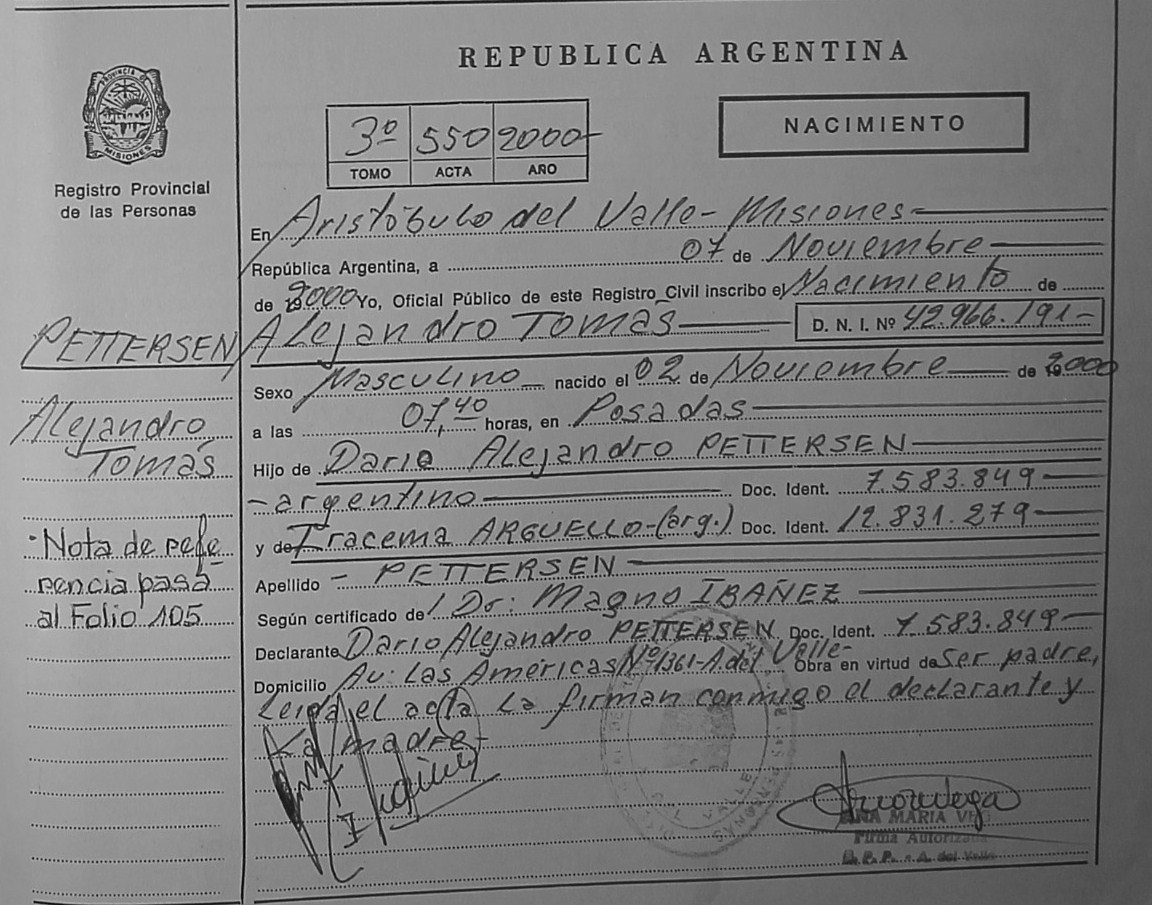 REPUBLICA ARGENTINA
PROVINCIA DE
MISIONES
Registro Provincial
de las Personas
3º 550 2000
TOMO ACTA AÑO
NACIMIENTO
En Aristóbulo del Valle - Misiones
República Argentina, a 07 de Noviembre
de 2000 Yo, Oficial Público de este Registro Civil inscribo el Nacimiento de
Alejandro Tomás D. N. I. Nº 42.966.191-
Sexo Masculino nacido el 02 de Noviembre de 2000
a las 07,40 horas, en Posadas
Hijo de Dario Alejandro PETTERSEN
- argentino Doc. Ident. 7.583.849
y de Iracema ARGUELLO - (arg.) Doc. Ident. 12.831.279
Apellido - PETTERSEN
Según certificado de Dr: Magno IBAÑEZ
Declarante Dario Alejandro PETTERSEN Doc. Ident. 7.583.849
Domicilio Av: Las Américas Nº 1361 - A. del Valle - Obra en virtud de ser padre,
Leida el acta la firman conmigo el declarante y
la madre -
PETTERSEN
Alejandro
Tomás
Nota de refe
rencia pasa
al Folio 105
ANA MARIA
Firma Autorizada
R. P. P. - A. del Valle